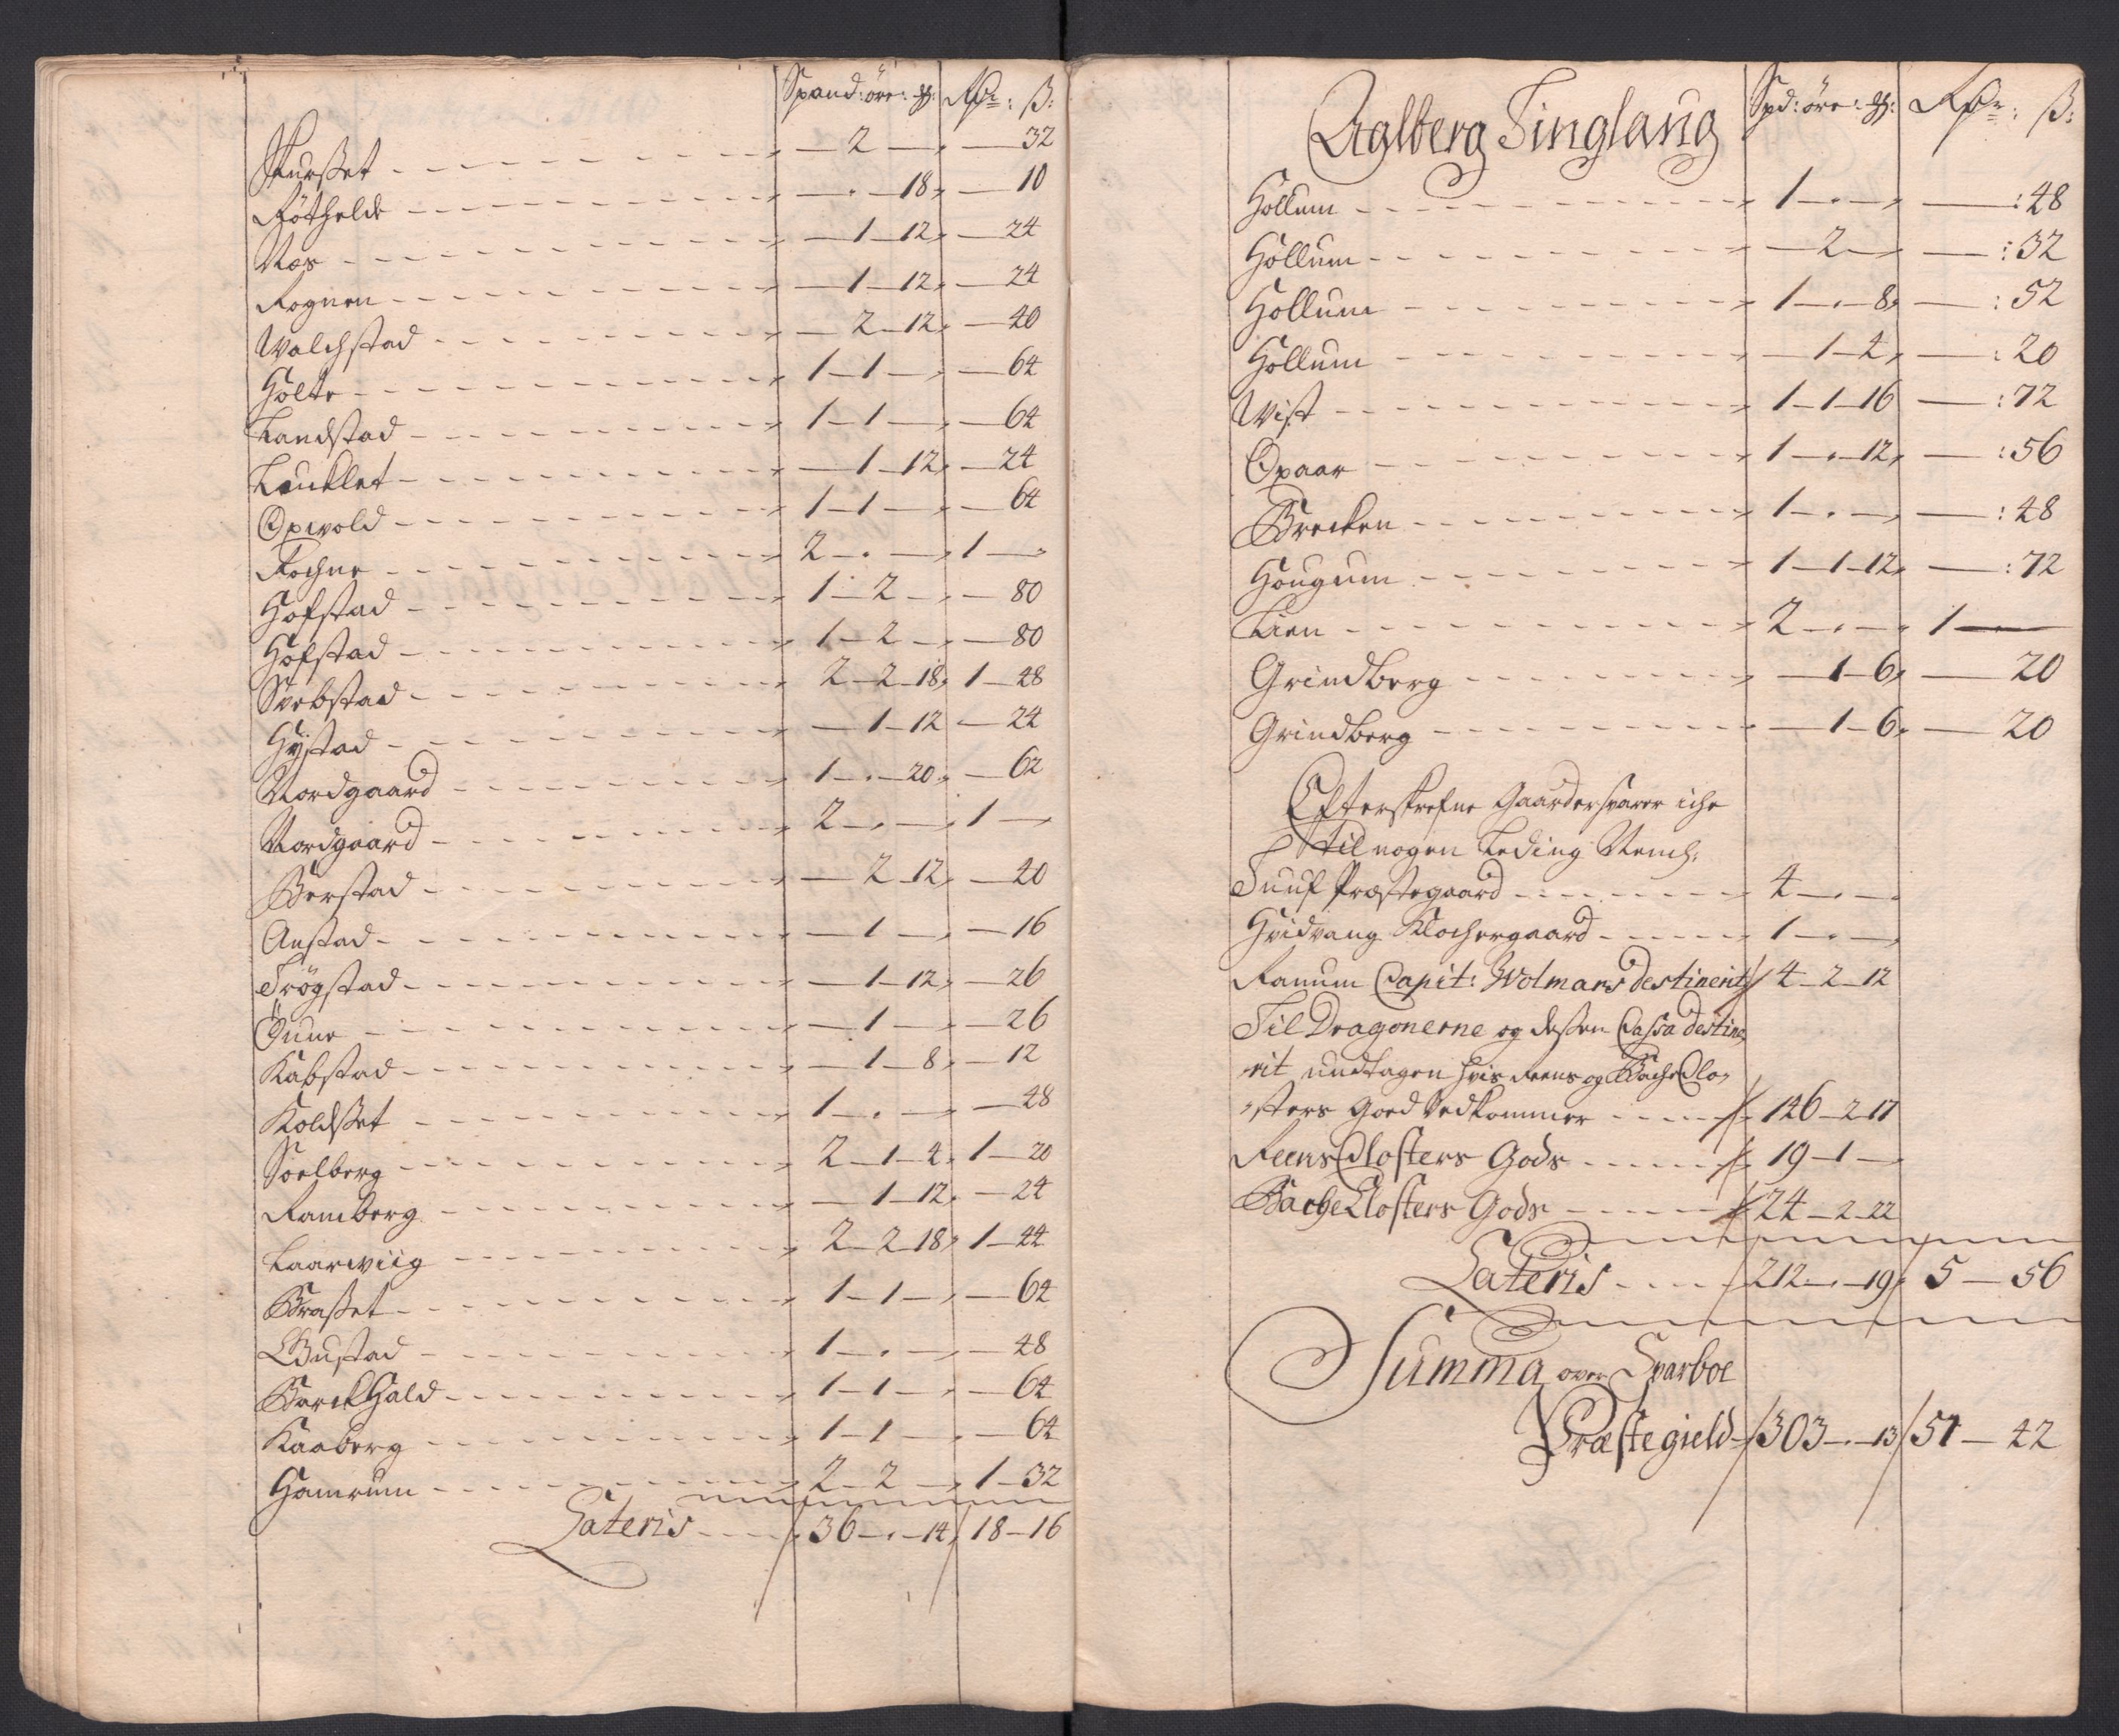 Spand: öre: ₰: Rdr: ß:
Skursset - - 2 - - 32
Röthelde - - . - 18 - 10
Næs - - 1 - 12 - 24
Rognen - - 1 - 12 - 24
Walchstad - - 2 - 12 - 40
Holte - - 1 - 1 - - 64
Landstad - - 1 - 1 - - 64
Leucklet - - 1 - 12 - 24
Opwold - - 1 - 1 - - 64
Rochne - - 2 - . - 1 -
Hofstad - - 1 - 2 - - 80
Hofstad - - 1 - 2 - - 80
Svebstad - - 2 - 2 - 18 1 - 48
Hÿstad - - 1 - 12 - 24
Nordgaard - - 1 - . - 20 - 62
Nordgaard - - 2 - . - 1 -
Berstad - - 2 - 12 - 40
Anstad - - 1 - - 16
Trögstad - - 1 - 12 - 26
Öune - - 1 - - 26
Kabstad - - 1 - 8 - 12
Koldsset - - 1 - . - - 48
Soelberg - - 2 - 1 - 4 1 - 20
Ramberg - - 1 - 12 - 24
Laarwiig - - 2 - 2 - 18 1 - 44
Brasset - - 1 - 1 - - 64
Bustad - - 1 - . - - 48
BarckHald - - 1 - 1 - - 64
Kaaberg - - 1 - 1 - - 64
Hamrum - - 2 - 2 - 1 - 32
Lateris - - 36 - . - 14 18 - 16
Aalberg Tinglaug Spd: öre: ₰: Rdr: ß:
Hollum - - 1 - . - - : 48
Hollum - - 2 - - : 32
Hollum - - 1 - . - 8 - : 52
Hollum - - 1 - 4 - : 20
Wist - - 1 - 1 - 16 - : 72
Opaar - - 1 - . - 12 - : 56
Brecken - - 1 - . - - : 48
Hougum - - 1 - 1 - 12 - : 72
Lien - - 2 - . - 1 -
Grindberg - - 1 - 6 - 20
Grindberg - - 1 - 6 - 20
Efterskrefne Gaarder svarer iche
til nogen Leding Neml:
Tuuf Præstegaard - - 4 - . -
Hvidvang Klochergaard - - 1 - . -
Ranum Capit: Wolmars destinerit 4 - 2 - 12
Til Dragonerne og dessen Cassa destine
rit undtagen hvis Reens og Bache Clo-
sters Goed Vedkommer - - 126 - 2 - 17
Reens Closters Gods - - 19 - 1 -
Bache Closters Gods - - 24 - 2 - 22
Lateris - - 212 - . - 19 5 - 56
Summa over Sparboe
Præstegield - 303 - . - 13 51 - 42